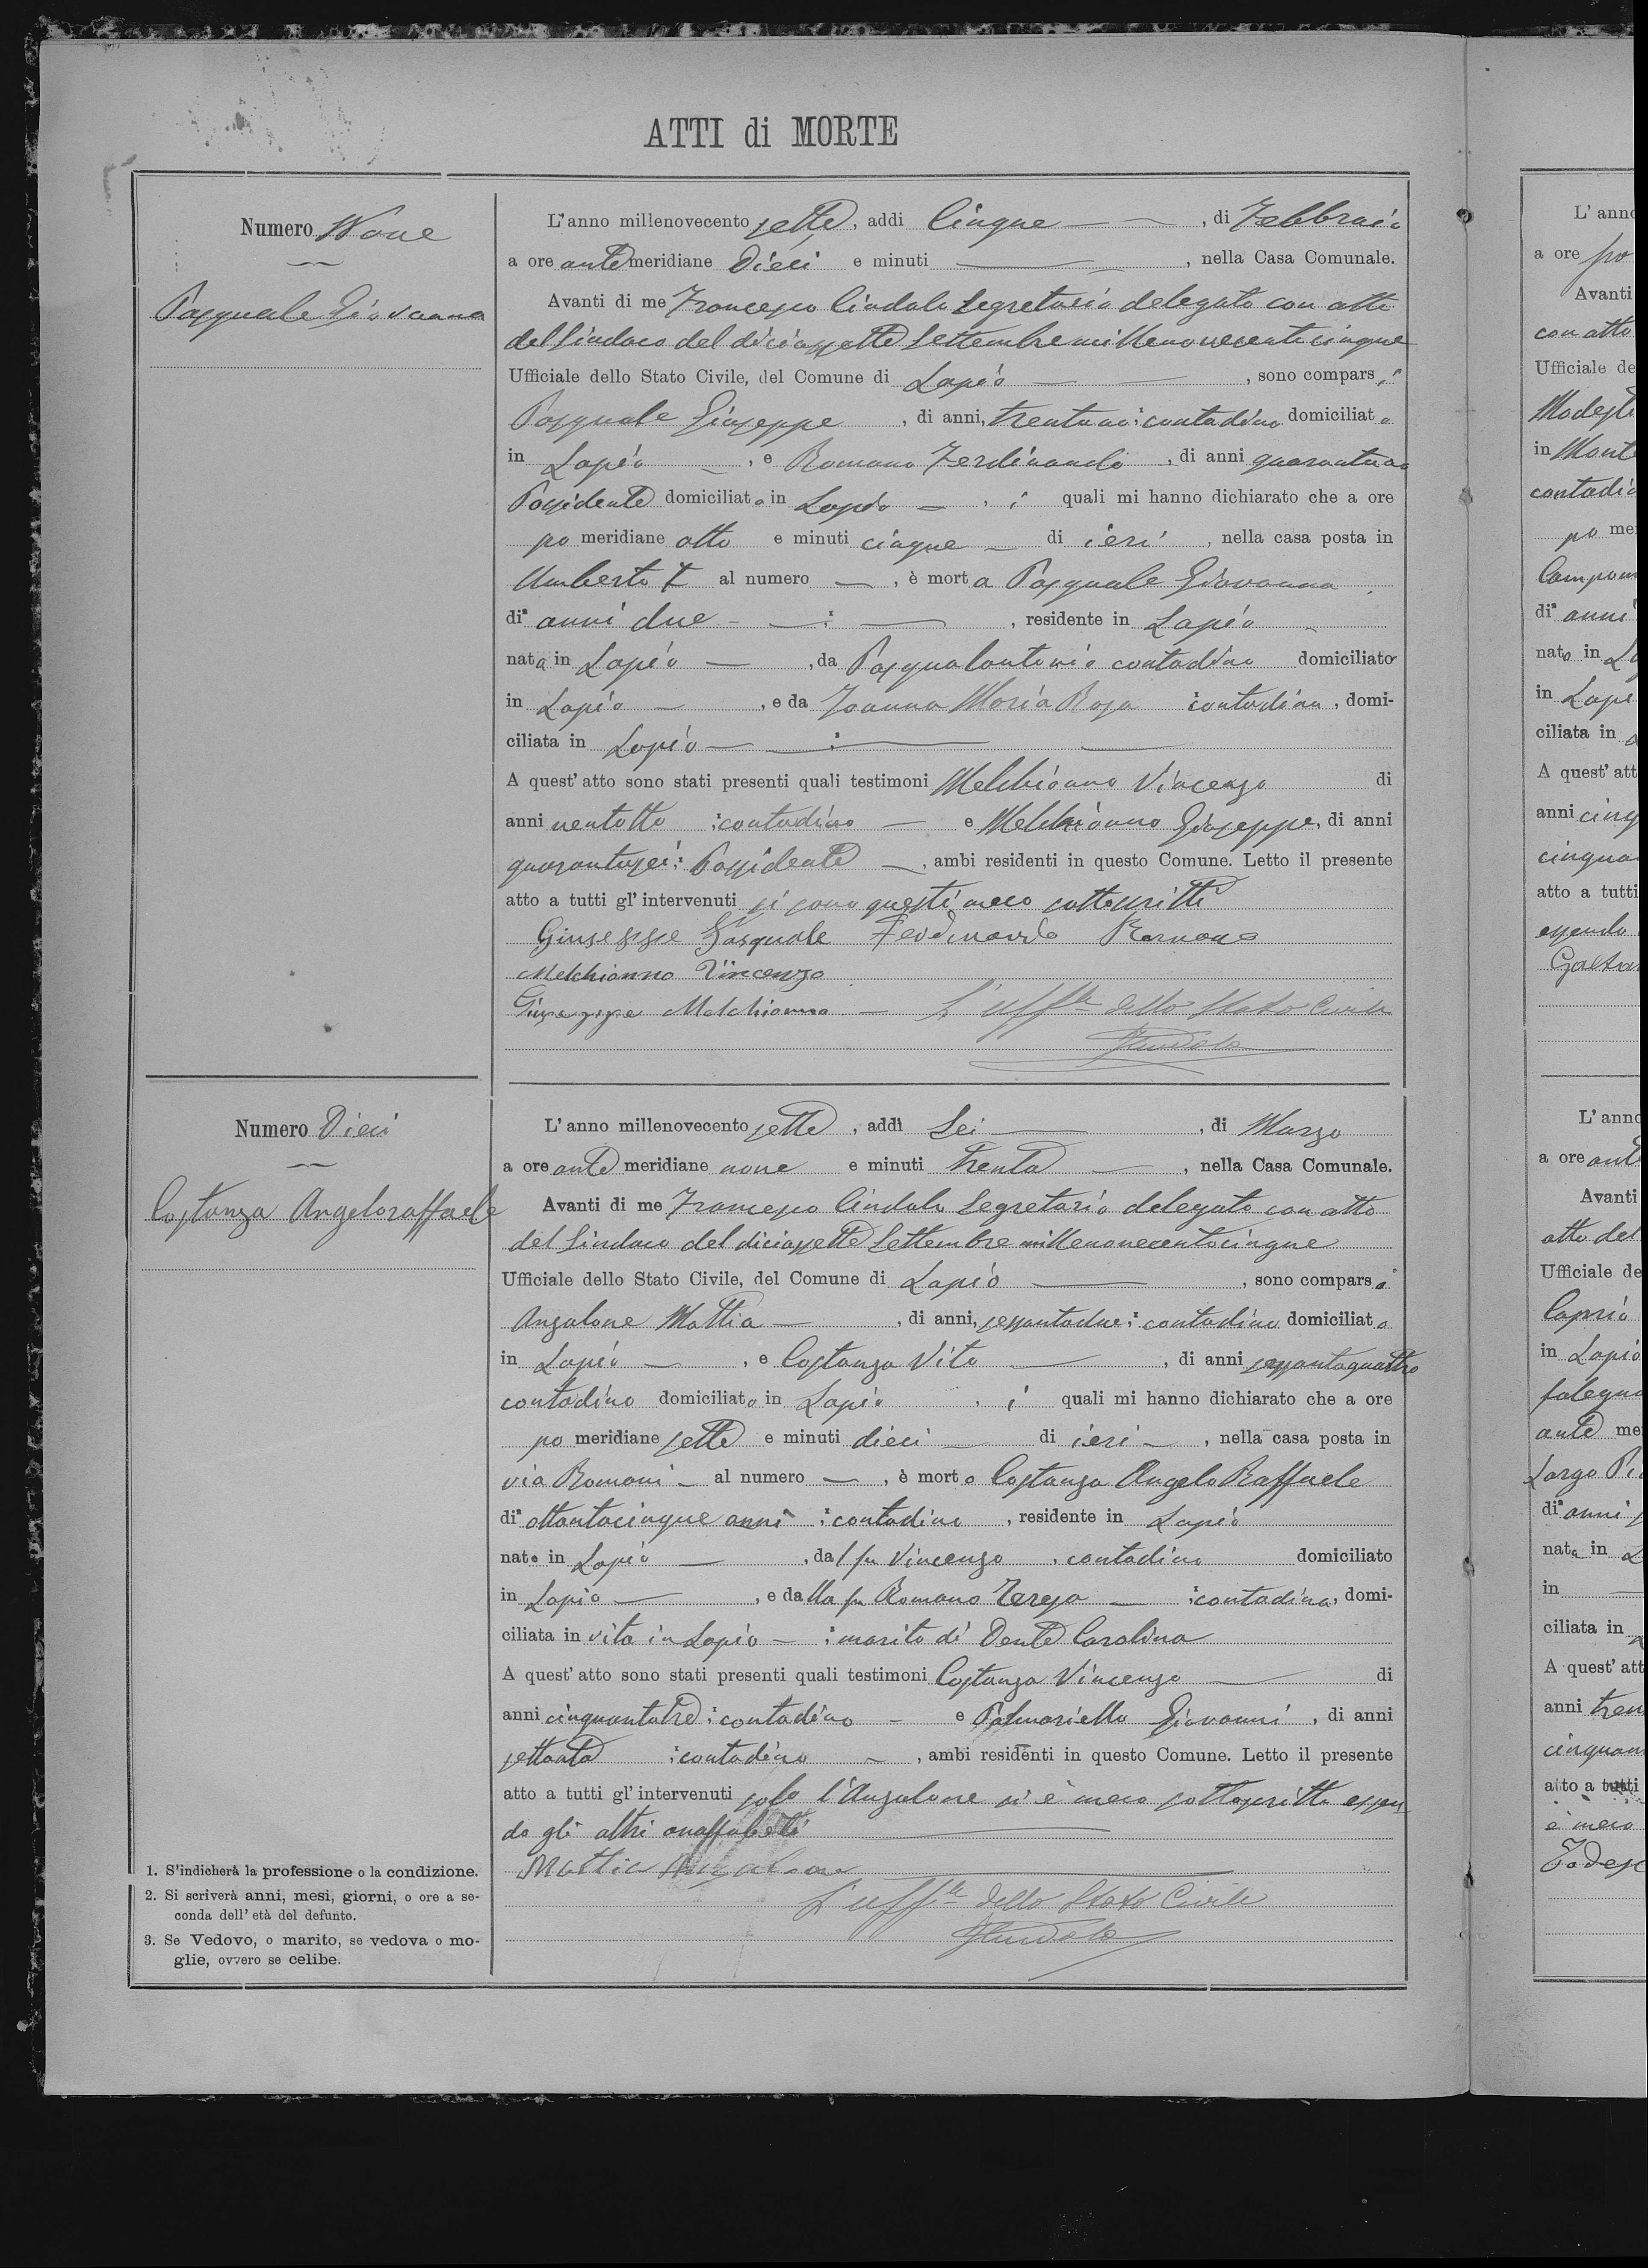 ATTI di MORTE
Numero Nove
Pasquale Giovanna
L'anno millenovecento sette, addì Cinque, di Febbraio
a ore ante meridiane dieci e minuti, nella Casa Comunale.
Avanti di me Francesco Cindolo Segretario delegato con atto
del Sindaco del diciassette Settembre millenovecentocinque
Ufficiale dello Stato Civile, del Comune di Lapio, sono comparsi
Pasquale Giuseppe, di anni, trentuno contadino domiciliato
in Lapio, e Romano Ferdinando, di anni quarantuno
Possidente domiciliato in Lapio, i quali mi hanno dichiarato che a ore
po meridiane otto e minuti cinque di ieri, nella casa posta in
Umberto I al numero, è morta Pasquale Giovanna
di anni due, residente in Lapio
nata in Lapio, da Pasqualantonio contadino domiciliato
in Lapio, e da Joanna Maria Rosa contadina, domi-
ciliata in Lapio
A quest'atto sono stati presenti quali testimoni Melchionno Vincenzo di
anni ventotto contadino e Melchionno Giuseppe, di anni
quarantasei Possidente, ambi residenti in questo Comune. Letto il presente
atto a tutti gl'intervenuti si sono questi meco sottoscritti
Giuseppe Pasquale Ferdinando Romano
Melchionno Vincenzo
Giuseppe Melchionno L'uff.le dello Stato Civile
FCindolo
Numero Dieci
Costanza Angeloraffaele
L'anno millenovecento sette, addì Sei, di Marzo
a ore ante meridiane nove e minuti trenta, nella Casa Comunale.
Avanti di me Francesco Cindolo Segretario delegato con atto
del Sindaco del diciassette Settembre millenovecentocinque
Ufficiale dello Stato Civile, del Comune di Lapio, sono comparsi
Anzalone Mattia, di anni, sessantadue contadino domiciliato
in Lapio, e Costanza Vito, di anni sessantaquattro
contadino domiciliato in Lapio, i quali mi hanno dichiarato che a ore
po meridiane sette e minuti dieci di ieri, nella casa posta in
via Romani al numero, è morto Costanza Angelo Raffaele
di ottantacinque anni contadino, residente in Lapio
nato in Lapio, dal fu Vincenzo, contadino domiciliato
in Lapio, e dalla fu Romano Teresa contadina, domi-
ciliata in vita in Lapio marito di Dente Carolina
A quest'atto sono stati presenti quali testimoni Costanza Vincenzo di
anni cinquantatre contadino e Palmariello Giovanni, di anni
settanta contadino, ambi residenti in questo Comune. Letto il presente
atto a tutti gl'intervenuti solo l'Anzalone si è meco sottoscritto essen
do gli altri analfabeti
Mattia Anzalone
L'uff.le dello Stato Civile
FCindolo
1. S'indicherà la professione o la condizione.
2. Si scriverà anni, mesi, giorni, o ore a se-
conda dell'età del defunto.
3. Se Vedovo, o marito, se vedova o mo-
glie, ovvero se celibe.
L'anno
a ore po
Avanti
con atto
Ufficiale de
Modest
in Mont
contadin
po me
di anni
nato in L
in Lapi
ciliata in
A quest'att
anni cinq
cinquan
atto a tutti
essendo
Gaeta
L'anno
a ore ant
Avanti
atto del
Ufficiale de
Caprio
in Lapio
falegna
ante me
Largo Pi
di anni
nata in L
in
ciliata in
A quest'att
anni tren
cinquan
atto a tutti
è meco